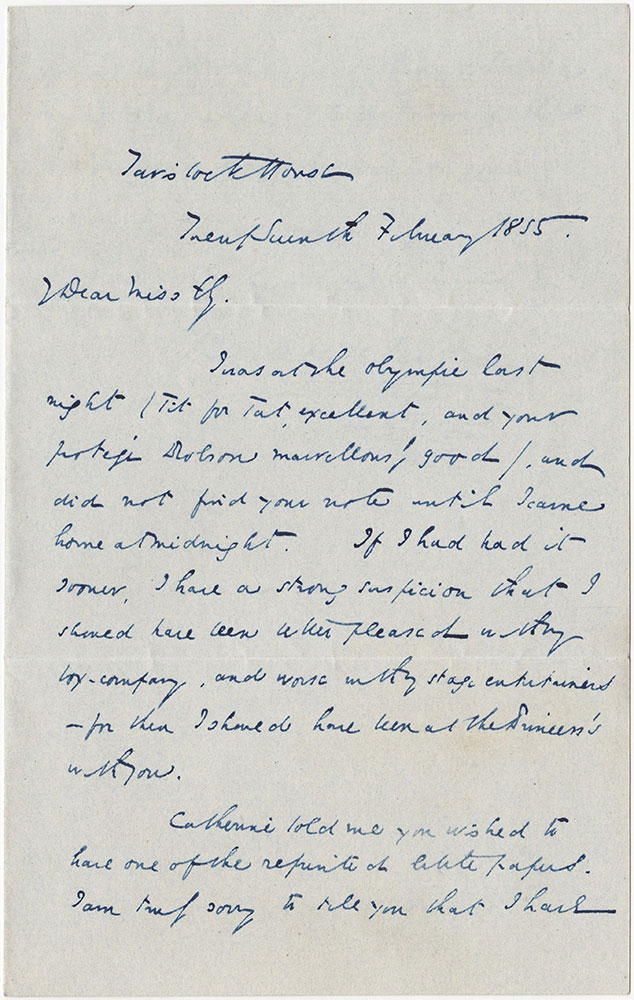 Tavistock House
Twenty Seventh February 1855.
My Dear Miss Ely.
I was at the Olympic last
night (Tit for Tat, excellent, and your
protégé Robson marvellously good), and
did not find your note until I came
home at midnight. If I had had it
sooner, I have a strong suspicion that I
should have been better pleased with my
box-company, and worse with my stage entertainers
– for then I should have been at the Princess's
with you.
Catherine told me you wished to
have one of the reprinted little papers.
I am truly sorry to tell you that I have